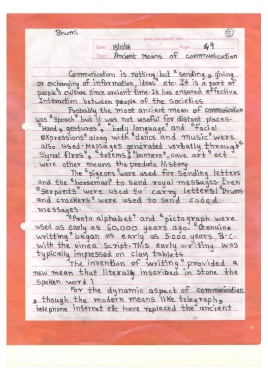 Drums
Date 15/11/18 Page 49
Topic Ancient Means of communication
Communication is nothing but "sending & giving
or exchanging of information, ideas etc. It is a part of
people's culture since ancient time. It has ensured effective
Interaction between people of the societies.
Probably the most ancient mean of communication
was "Speech" but it was not useful for distant places.
"Hand gestures", "body language" and "facial
expressions" along with "dance and music" were
also used. Messages generated verbally through
"Signal fires", "totems", "banners", cave art" ect
were other means the predate history.
The "pigeons were used for sending letters
and the "horseman" to send royal messages. Even
"Serpents" were used to carry letters! Drums
and crackers" were used to send coded
messages.
"Proto alphabet" and "pictograph were
used as early as 60,000 years ago. "Genuine
writting" began as early as 5000 years B.C.
with the vinea Script. This early writing was
typically impressed on clay tablets.
The invention of writing provided a
new mean that literally inscribed in stone the
spoken word!
For the dynamic aspect of communication
, though the modern means like telegraph,
telephone internet etc have replaced the ancient